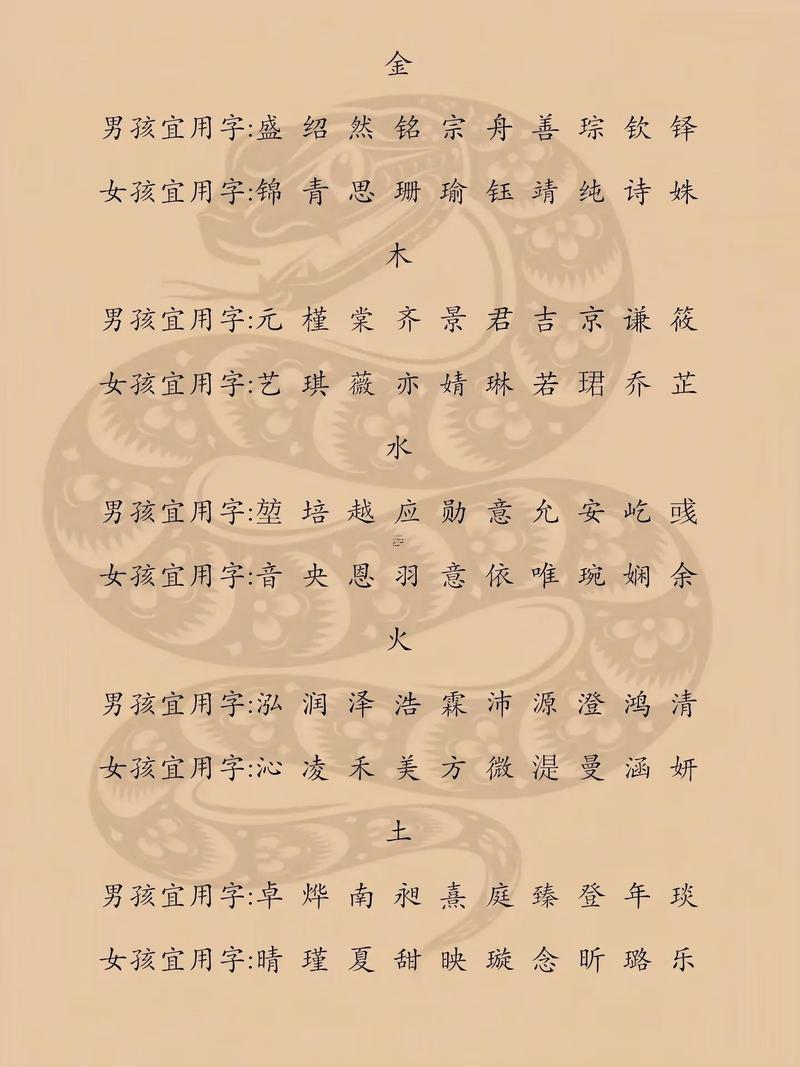 金
男孩宜用字:盛 绍 然 铭 宗 舟 善 琮 钦 铎
女孩宜用字:锦 青 思 珊 瑜 钰 靖 纯 诗 姝
木
男孩宜用字:元 槿 棠 齐 景 君 吉 京 谦 筱
女孩宜用字:艺 琪 薇 亦 婧 琳 若 珺 乔 芷
水
男孩宜用字:堃 培 越 应 勋 意 允 安 屹 彧
女孩宜用字:音 央 恩 羽 意 依 唯 琬 娴 余
火
男孩宜用字:泓 润 泽 浩 霖 沛 源 澄 鸿 清
女孩宜用字:沁 凌 禾 美 方 微 湜 曼 涵 妍
土
男孩宜用字:卓 烨 南 昶 熹 庭 臻 登 年 琰
女孩宜用字:晴 瑾 夏 甜 映 璇 念 昕 璐 乐